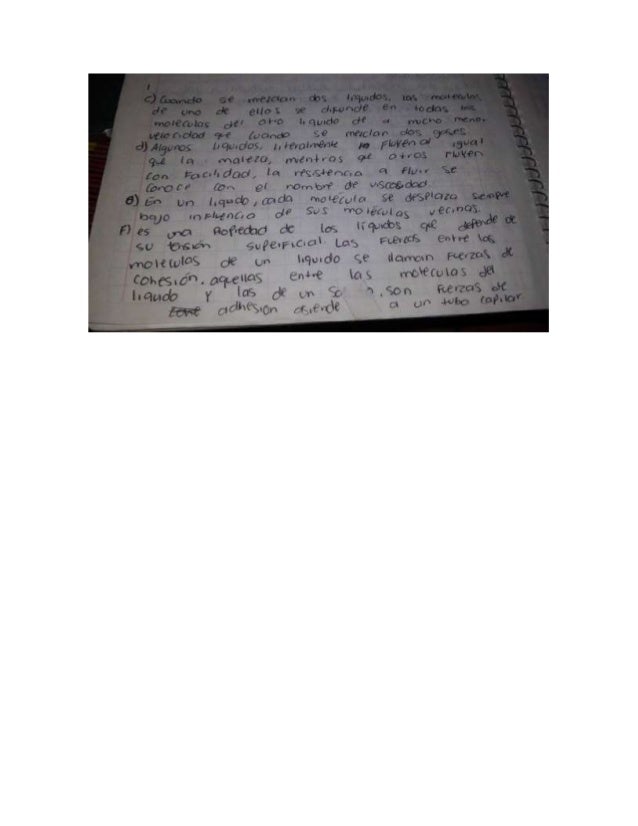 c) Cuando se mezclan dos líquidos, las moléculas
de uno de ellos se difunde en todas las
moleculas del otro liquido de a mucho menor
velocidad que cuando se mezclan dos gases
d) Algunos liquidos, literalmente fluyen al igual
que la maleza, mientras que otros fluyen
con Facilidad, la resistencia a fluir se
conoce con el nombre de viscosidad.
e) En un liquido, cada molécula se desplaza siempre
bajo influencia de sus moléculas vecinas.
F) es una Propiedad de los líquidos que defende de
su tensión superficial. Las Fuerzas entre las
moleculas de un liquido se llaman Fuerzas de
cohesión, aquellas entre las moleculas del
liquido y las de un son Fuerzas de
adhesion asiende a un tubo capilar